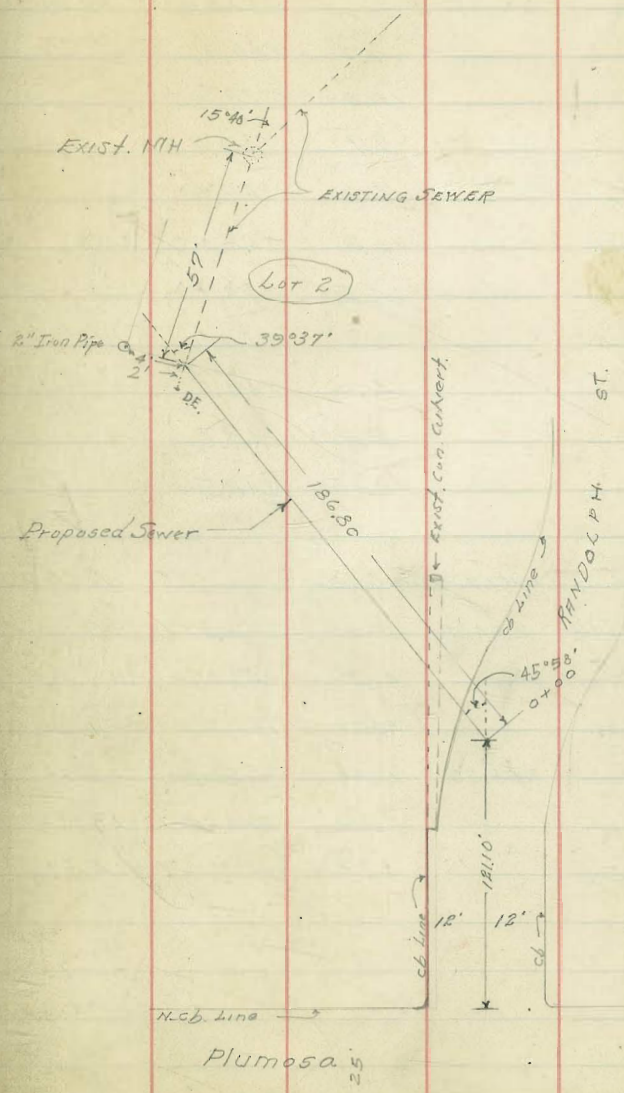 15°40'
Exist. MH
EXISTING SEWER
57'
Lot 2
2" Iron Pipe
4
2'
39°37'
D.E.
186.80
Proposed Sewer
Exist. Con. Culvert.
RANDOLPH ST.
cb Line
45°58'
0+00
121.10'
cb Line
12'
12'
cb
N. cb. Line
Plumosa
25'